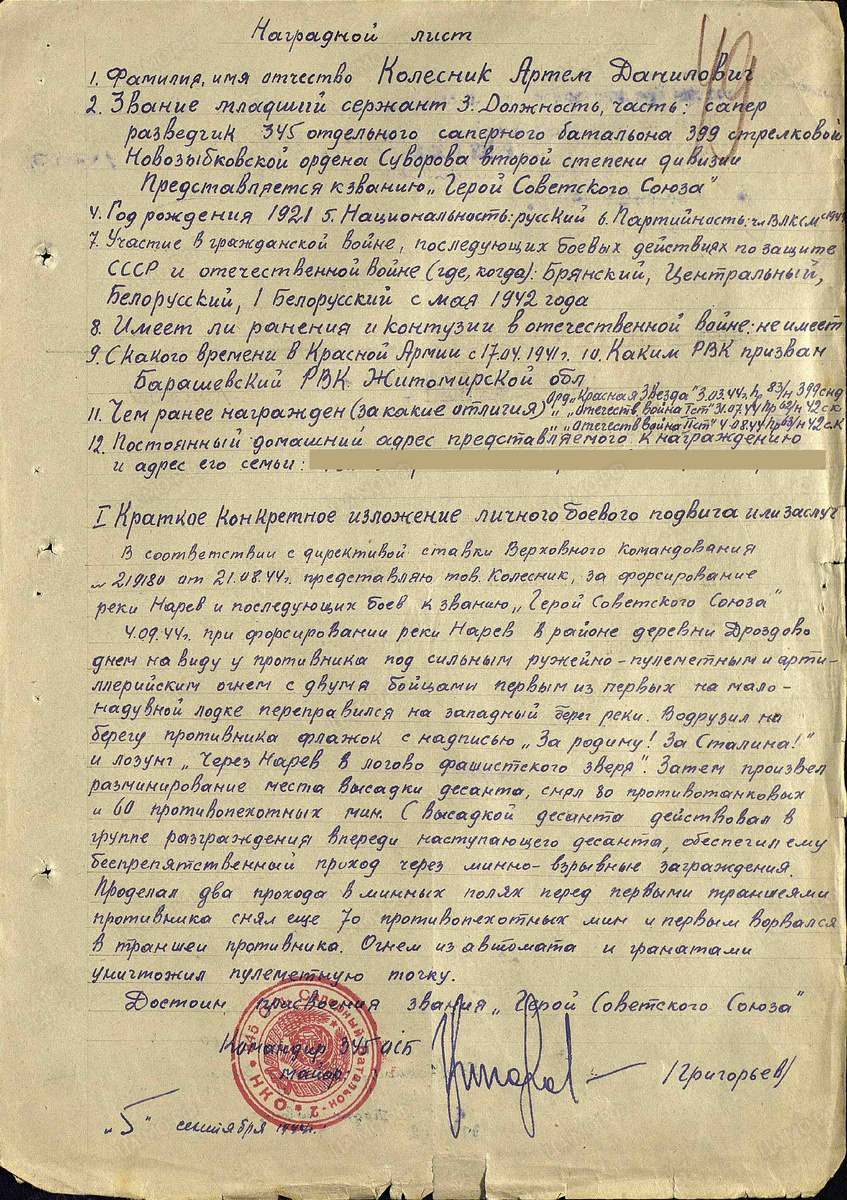 Наградной лист
49
1. Фамилия, имя отчество Колесник Артем Данилович
2. Звание младший сержант 3. Должность, часть: сапер
разведчик 345 отдельного саперного батальона 399 стрелковой
Новозыбковской ордена Суворова второй степени дивизии
Представляется к званию „Герой Советского Союза"
4. Год рождения 1921 5. Национальность: русский 6. Партийность: чл ВЛКСМ с
7. Участие в гражданской войне, последующих боевых действиях по защите
СССР и отечественной войне (где, когда): Брянский, Центральный,
Белорусский, 1 Белорусский с мая 1942 года
8. Имеет ли ранения и контузии в отечественной войне: не имеет
9. С какого времени в Красной Армии с 17.04.1941г. 10. Каким РВК призван
Барашевский РВК Житомирской обл
Орд „Красная Звезда" 3.03.44г. пр 83/н 399 снд
11. Чем ранее награжден (за какие отличия) „ „Отечеств война Iст" 31.07.44 пр 62/н 42 ск
„ „Отечеств война IIст" 4.08.44 пр 63/н 42 ск
12. Постоянный домашний адрес представляемого к награждению
и адрес его семьи:
I Краткое конкретное изложение личного боевого подвига или заслуг
В соответствии с директивой ставки Верховного командования
№ 219180 от 21.08.44г. представляю тов. Колесник, за форсирование
реки Нарев и последующих боев к званию „Герой Советского Союза"
4.09.44г. при форсировании реки Нарев в районе деревни Дроздово
днем на виду у противника под сильным ружейно-пулеметным и арти-
ллерийским огнем с двумя бойцами первым из первых на мало-
надувной лодке переправился на западный берег реки. Водрузил на
берегу противника флажок с надписью „За родину! За Сталина!"
и лозунг „Через Нарев в логово фашистского зверя". Затем произвел
разминирование места высадки десанта, снял 80 противотанковых
и 60 противопехотных мин. С высадкой десанта действовал в
группе разграждения впереди наступающего десанта, обеспечил ему
беспрепятственный проход через минно-взрывные заграждения.
Проделал два прохода в минных полях перед первыми траншеями
противника снял еще 70 противопехотных мин и первым ворвался
в траншеи противника. Огнем из автомата и гранатами
уничтожил пулеметную точку.
Достоин присвоения звания „Герой Советского Союза"
Командир 345 осб
майор
/Григорьев/
„5" сентября 1944г.